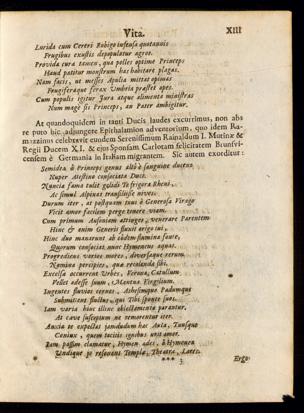 Vita. XIII
Lurida cum Cereri Rubigo infensa quotannis
Frugibus exustis depopulatur agros.
Provida cura tamen, qua polles optime Princeps
Haud patitur monstrum has habitare plagas.
Nam facis, ut messes Apula mittat opimas
Frugiferaque ferax Umbria præstet opes.
Cum populis igitur Jura atque alimenta ministras
Num magè sis Princeps, an Pater ambigitur.
At quandoquidem in tanti Ducis laudes excurrimus, non abs
re puto hic adjungere Epithalamion adventorium, quo idem Ra-
mazzinus celebravit eundem Serenissimum Rainaldum I. Mutinæ &
Regii Ducem XI. & ejus Sponsam Carlotam felicitatem Brunsvi-
censem è Germania in Italiam migrantem. Sic autem exorditur:
Semidea è Princeps genus altò è sanguine ductum,
Nuper Atestino consociata Duci.
Nuncia fama tulit gelidi Te frigora Rheni,
Ac simul Alpinas transiliisse nives.
Durum iter, at postquam tuus è Generosa Virago
Vicit amor facilem perge tenere viam.
Cum primum Ausoniam attinges, venerare Parentem
Hinc & enim Generis fluxit origo tui.
Hinc duo manarunt ab eodem flumina fonte,
Quorum consociat nunc Hymenæus aquas.
Progrediens varios mores, diversaque rerum
Nomina percipies, quæ recolenda sibi.
Excelsa occurrent Urbes, Verona Catullum
Vellet adesse suum, Mantua Virgilium.
Ingentes fluvios cernes, Athesimque Padumque
Submittent fluctus, qui Tibi sponte suos.
Jam varia hinc illinc oblectamenta parantur,
At cave susceptum ne remorentur iter.
Anxia te expectat jamdudum hac Aula, Tuusque
Conjux, quem tacitis ignibus urit amor.
Jam passim clamatur, Hymen ades, ô Hymenæe
Undique & resonent Templa, Theatra, Lares.
*** 3 Ergo